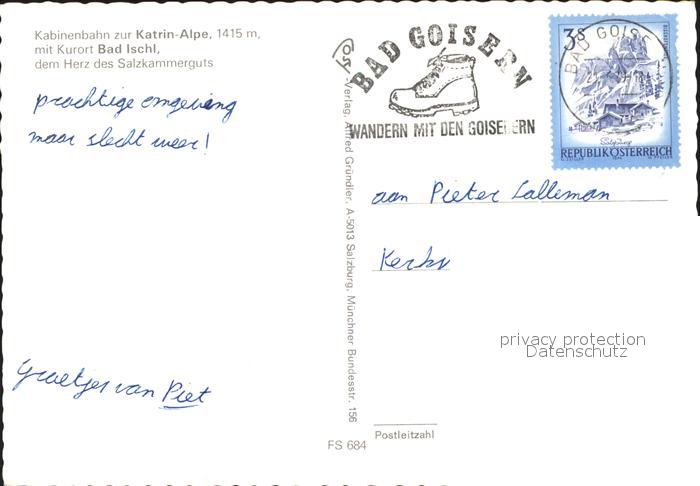 Kabinenbahn zur Katrin-Alpe, 1415 m,
mit Kurort Bad Ischl,
dem Herz des Salzkammerguts
prachtige omgeving
maar slecht weer!
Groetjes van Piet
Verlag. Alfred Gründler, A-5013 Salzburg, Münchner Bundesstr. 156
FS 684
BAD GOISERN
WANDERN MIT DEN GOISERERN
3S
BAD GOISE
REPUBLIK ÖSTERREICH
aan Pieter Lalleman
privacy protection
Datenschutz
Postleitzahl